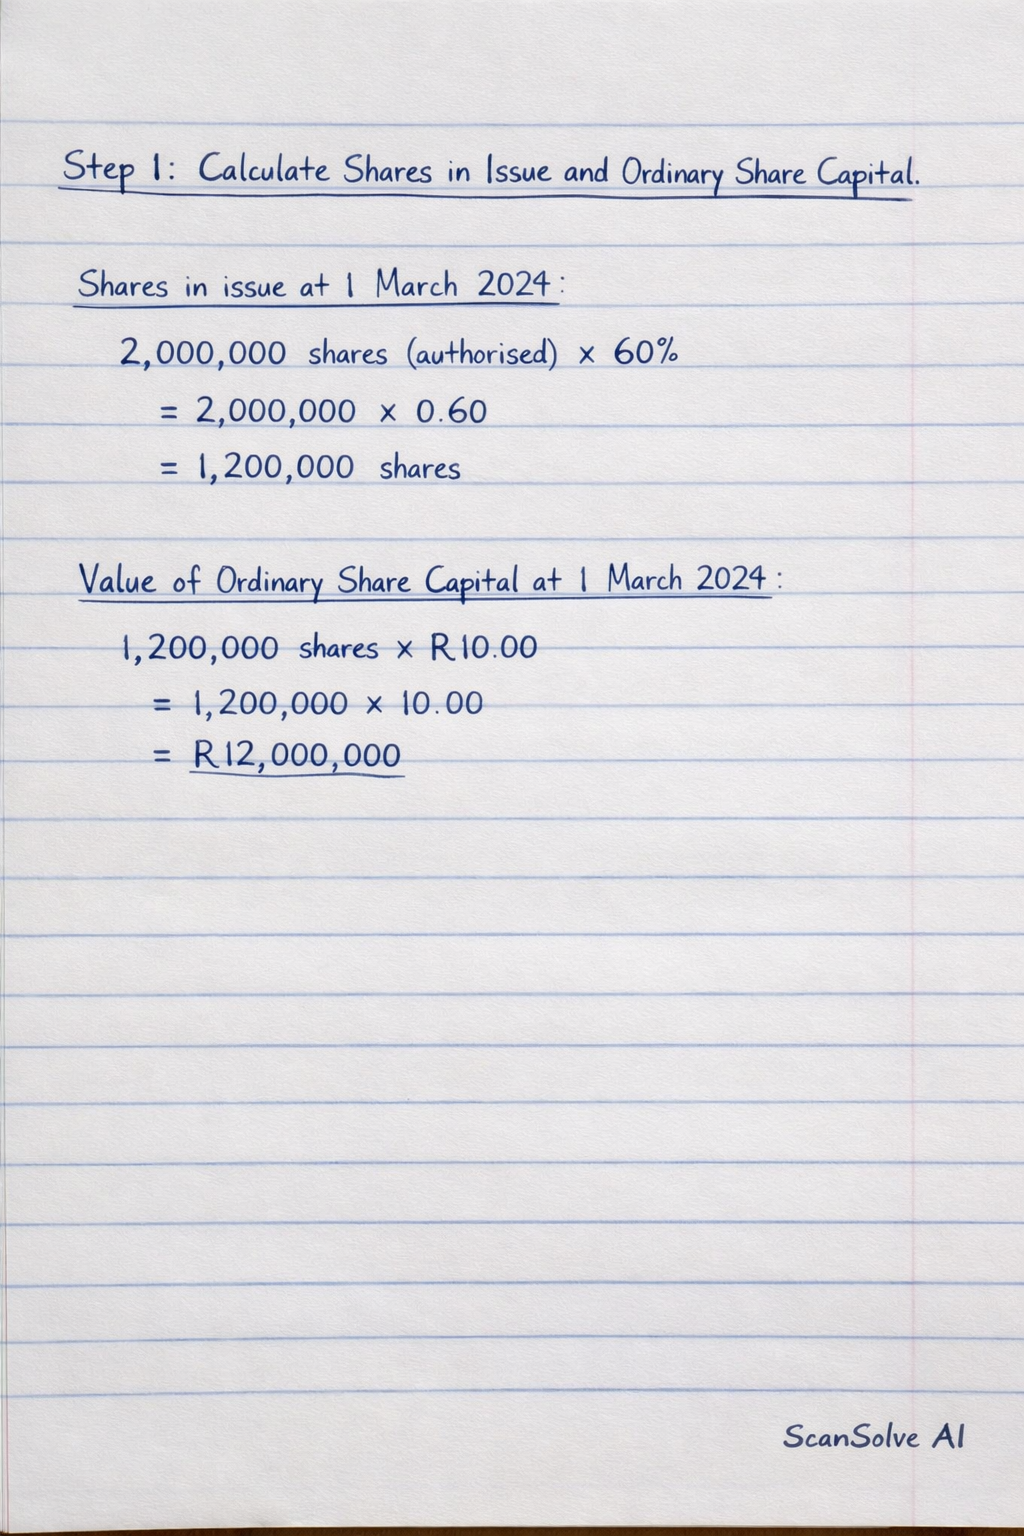 Step 1: Calculate Shares in Issue and Ordinary Share Capital.
Shares in issue at 1 March 2024:
2,000,000 shares (authorised) × 60%
= 2,000,000 × 0.60
= 1,200,000 shares
Value of Ordinary Share Capital at 1 March 2024:
1,200,000 shares × R10.00
= 1,200,000 × 10.00
= R12,000,000
ScanSolve AI